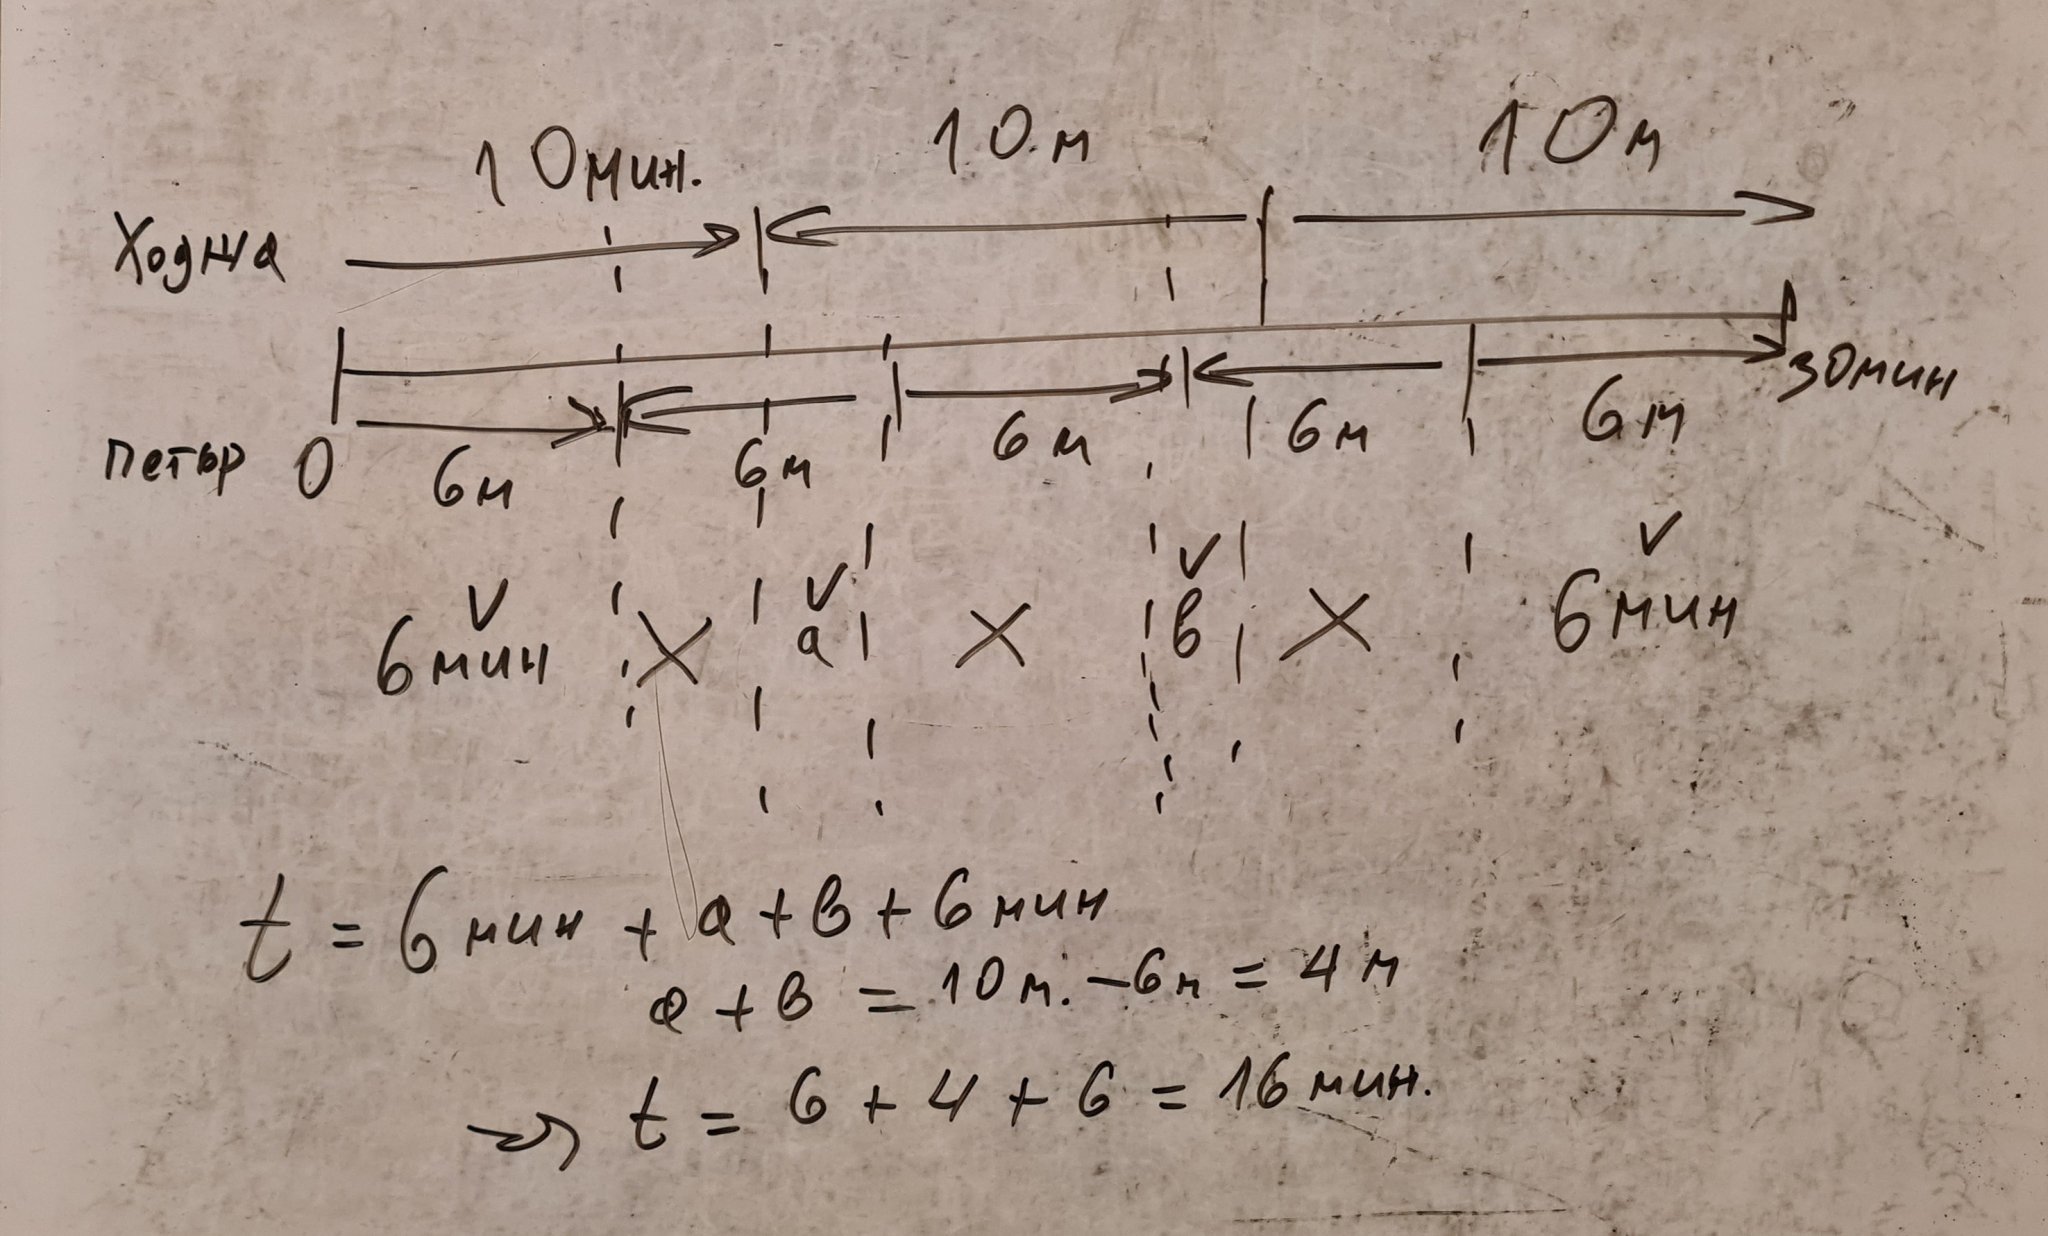 10мин. 10м 10м
Ходжа
30мин
Петър 0 6м 6м 6м 6м 6м
V V V V
6мин X a X в X 6мин
t = 6мин + a + в + 6мин
a + в = 10м. - 6м = 4м
→ t = 6 + 4 + 6 = 16мин.